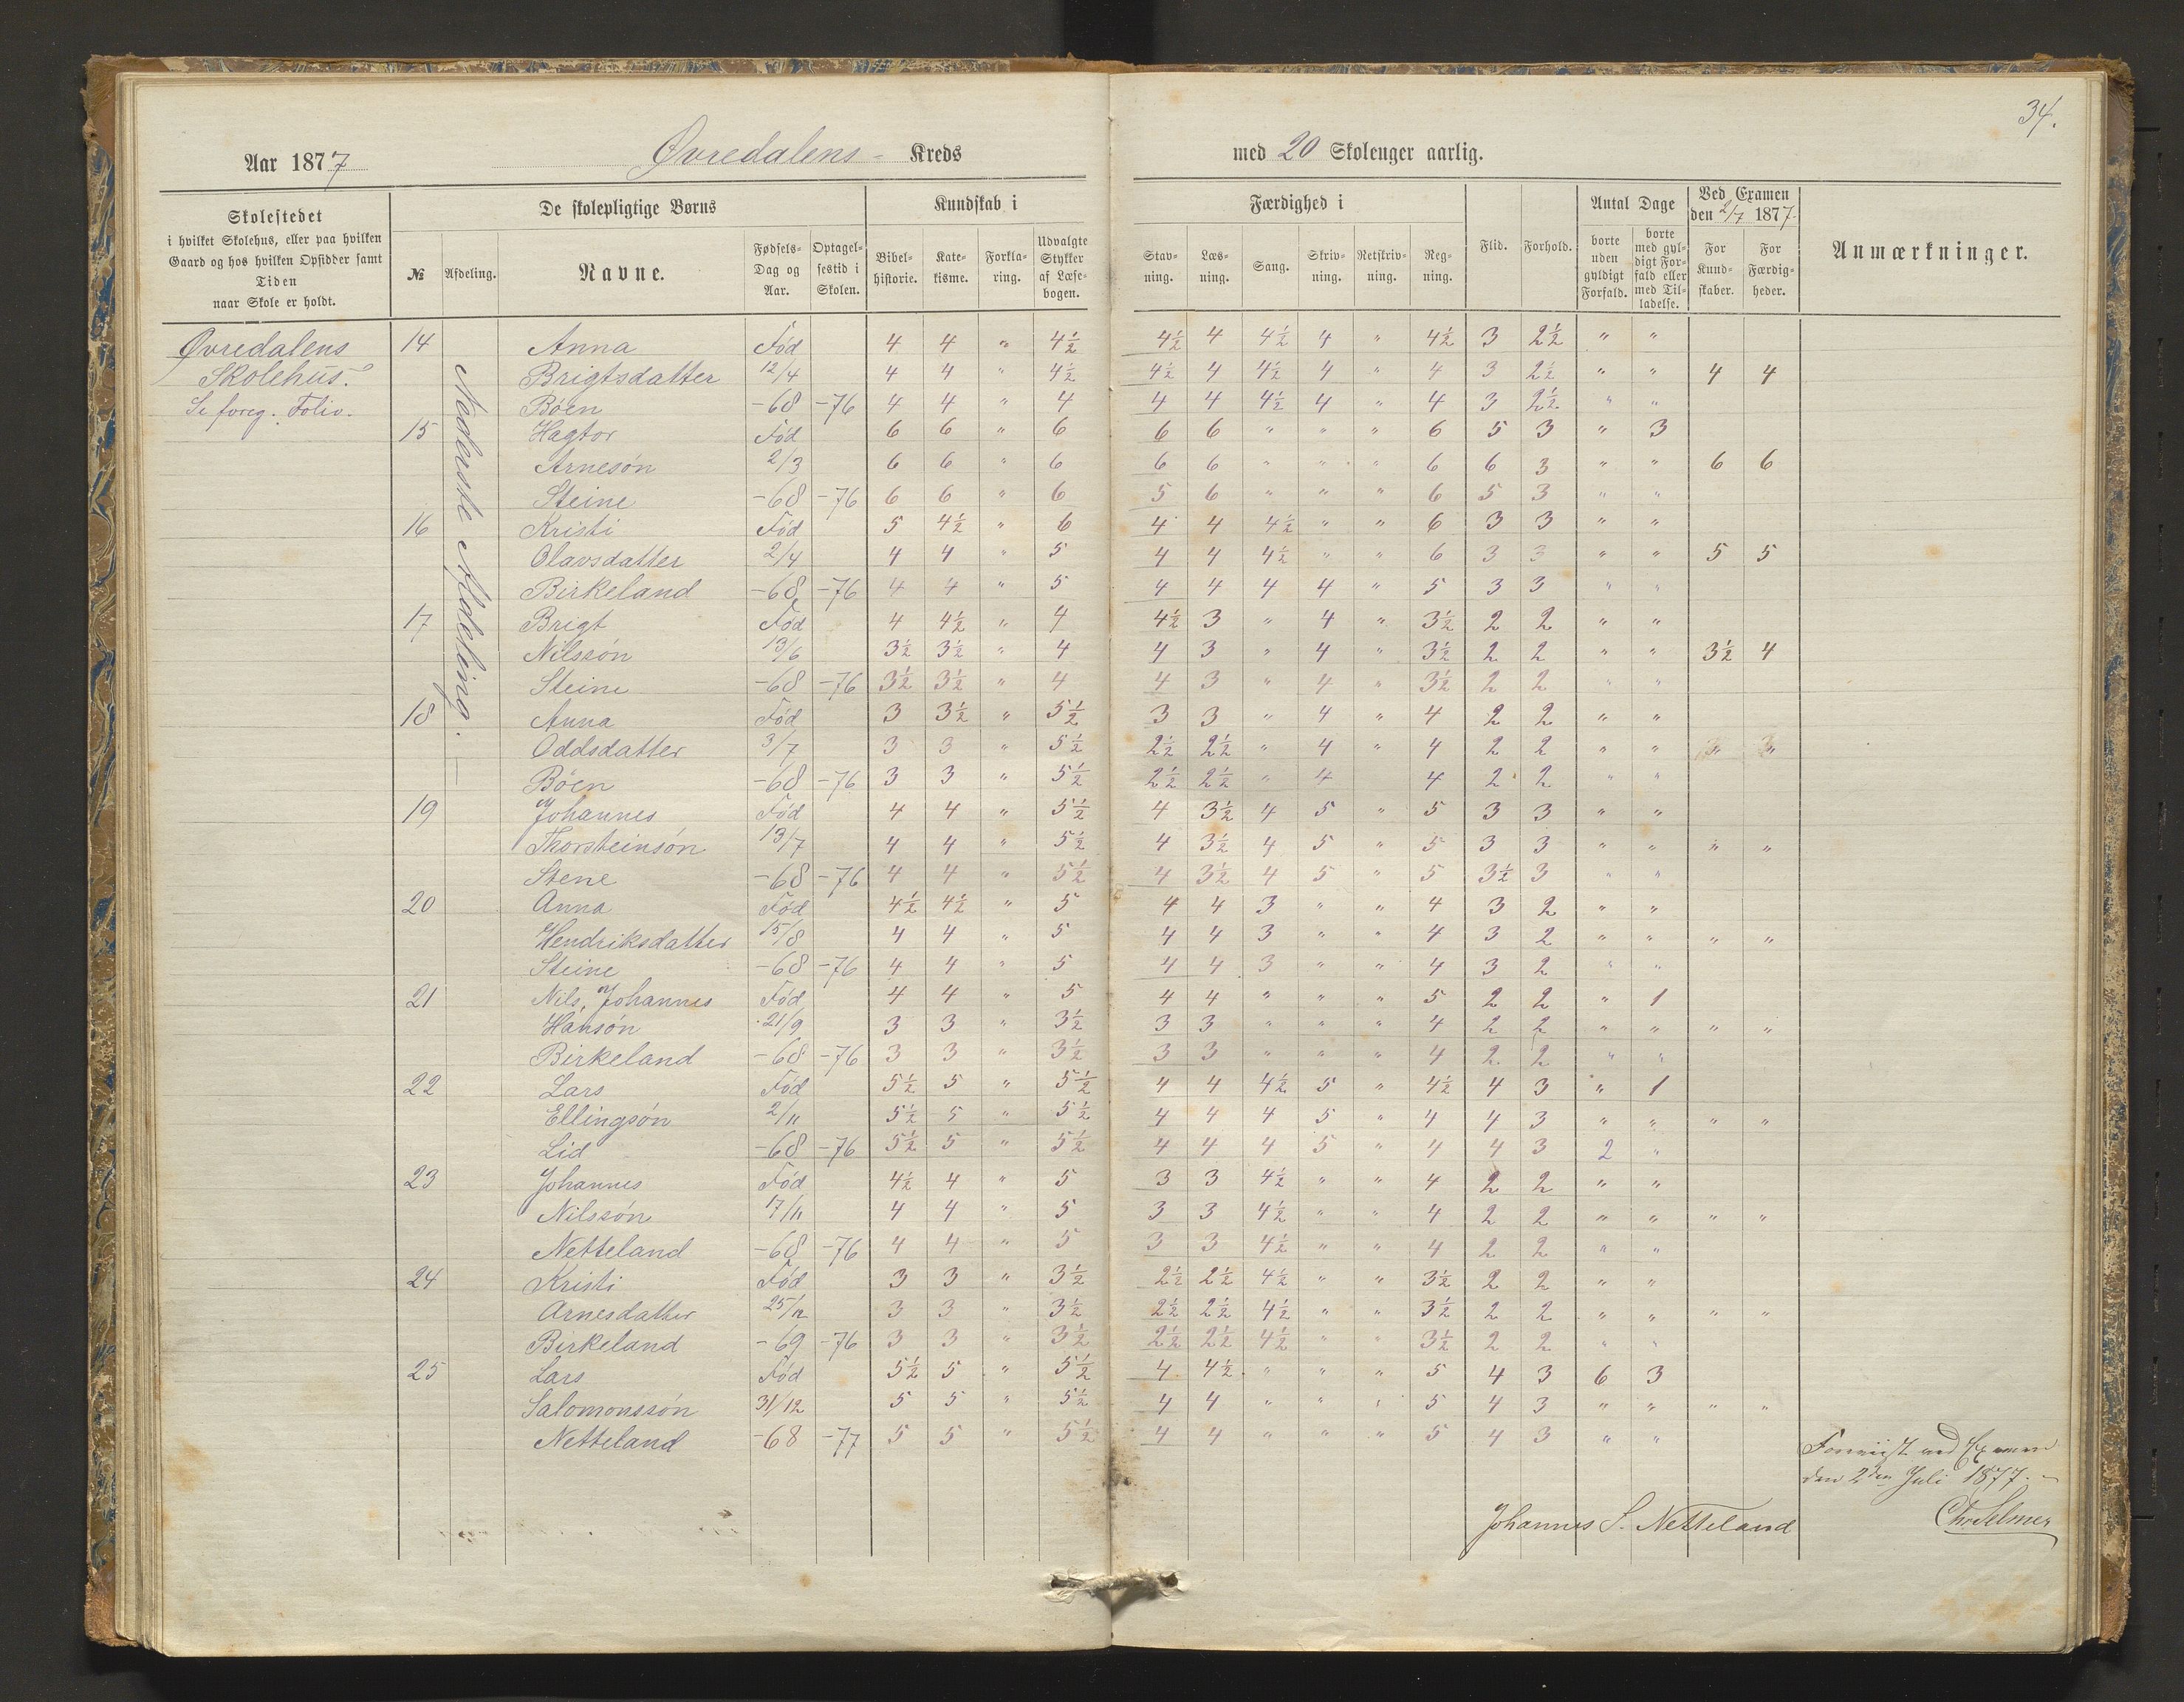 34.
Aar 1877 Øvredalens - Kreds med 20 Skoleuger aarlig.
Skolestedet i hvilket Skolehus, eller paa hvilken Gaard og hos hvilken Opsidder samt Tiden naar Skole er holdt.
De skolepligtige Børns
№ Afdeling. Navne. Fødsels-Dag og Aar. Optagelsestid i Skolen.
Kundskab i
Bibelhistorie. Katekisme. Forklaring. Udvalgte Stykker af Læsebogen.
Færdighed i
Stavning. Læsning. Sang. Skrivning. Retskrivning. Regning.
Flid. Forhold.
Antal Dage
borte uden gyldigt Forfald. borte med gyldigt Forfald eller med Tilladelse.
Ved Examen den 2/7 1877.
For Kundskaber. For Færdigheder.
Anmærkninger.
Øvredalens
Skolehus.
Se foreg. Folio.
Nederste Afdeling. —
14 Anna Fød 4 4 " 4½ 4½ 4 4½ 4 " 4½ 3 2½ " "
Brigtsdatter 12/4 4 4 " 4½ 4½ 4 4½ 4 " 4 3 2½ " " 4 4
Böen -68 -76 4 4 " 4 4 4 4½ 4 " 4 3 2½ " "
15 Hagtor Fød 6 6 " 6 6 6 " " " 6 5 3 " 3
Arnesón 2/3 6 6 " 6 6 6 " " " 6 6 3 " " 6 6
Steine -68 -76 6 6 " 6 5 6 " " " 6 5 3 " "
16 Kristi Fód 5 4½ " 6 4 4 4½ " " 6 3 3 " "
Olavsdatter 2/4 4 4 " 5 4 4 4½ " " 6 3 3 " " 5 5
Birkeland -68 -76 4 4 " 5 4 4 4 4 " 5 3 3 " "
17 Brigt Fód 4 4½ " 4 4½ 3 " 4 " 3½ 2 2 " "
Nilssón 13/6 3½ 3½ " 4 4 3 " 4 " 3½ 2 2 " " 3½ 4
Steine -68 -76 3½ 3½ " 4 4 3 " 4 " 3½ 2 2 " "
18 Anna Fód 3 3½ " 5½ 3 3 " 4 " 4 2 2 " "
Oddsdatter 3/7 3 3 " 5½ 2½ 2½ " 4 " 4 2 2 " " " "
Böen -68 -76 3 3 " 5½ 2½ 2½ " 4 4 2 2 " "
19 Johannes Fód 4 4 " 5½ 4 3½ 4 5 " 5 3 3 " "
Thorsteinsón 13/7 4 4 " 5½ 4 3½ 4 5 " 5 3 3 " " " "
Stene -68 -76 4 4 " 5½ 4 3½ 4 5 " 5 3½ 3 " "
20 Anna Fód 4½ 4½ " 5 4 4 3 " " 4 3 2 " "
Hendriksdatter 15/8 4 4 " 5 4 4 3 " " 4 3 2 " " " "
Steine -68 -76 4 4 " 5 4 4 3 " " 4 3 2 " "
21 Nils, Johannes Fód 4 4 " 5 4 4 " " " 5 2 2 " 1
Hánsón 21/9 3 3 " 3½ 3 3 " " " 4 2 2 " " " "
Birkeland -68 -76 3 3 " 3½ 3 3 " " " 4 2 2 " "
22 Lars Fód 5½ 5 " 5½ 4 4 4½ 5 " 4½ 4 3 " 1
Ellingsón 2/11 5½ 5 " 5½ 4 4 4 5 " 4 4 3 " " " "
Lid -68 -76 5½ 5 " 5½ 4 4 4 5 " 4 4 3 2 "
23 Johannes Fód 4½ 4 " 5 3 3 4½ " " 4 2 2 " "
Nilssón 17/11 4 4 " 5 3 3 4½ " " 4 2 2 " " " "
Netteland -68 -76 4 4 " 5 3 3 4½ " " 4 2 2 " "
24 Kristi Fód 3 3 " 3½ 2½ 2½ 4½ " " 3½ 2 2 " "
Arnesdatter 25/12 3 3 " 3½ 2½ 2½ 4½ " " 3½ 2 2 " " " "
Birkeland -69 -76 3 3 " 3½ 2½ 2½ 4½ " " 3½ 2 2 " "
25 Lars Fód 5½ 5 " 5½ 4 4½ " " " 5 4 3 6 3
Salomonssón 31/12 5 5 " 5½ 4 4 " " " 5 4 3 " " " "
Netteland -68 -77 5 5 " 5½ 4 4 " " " 5 4 3 " "
Foreviist ved Examen
den 2den Juli 1877. -
Johannes S. Netteland Chr Selmer